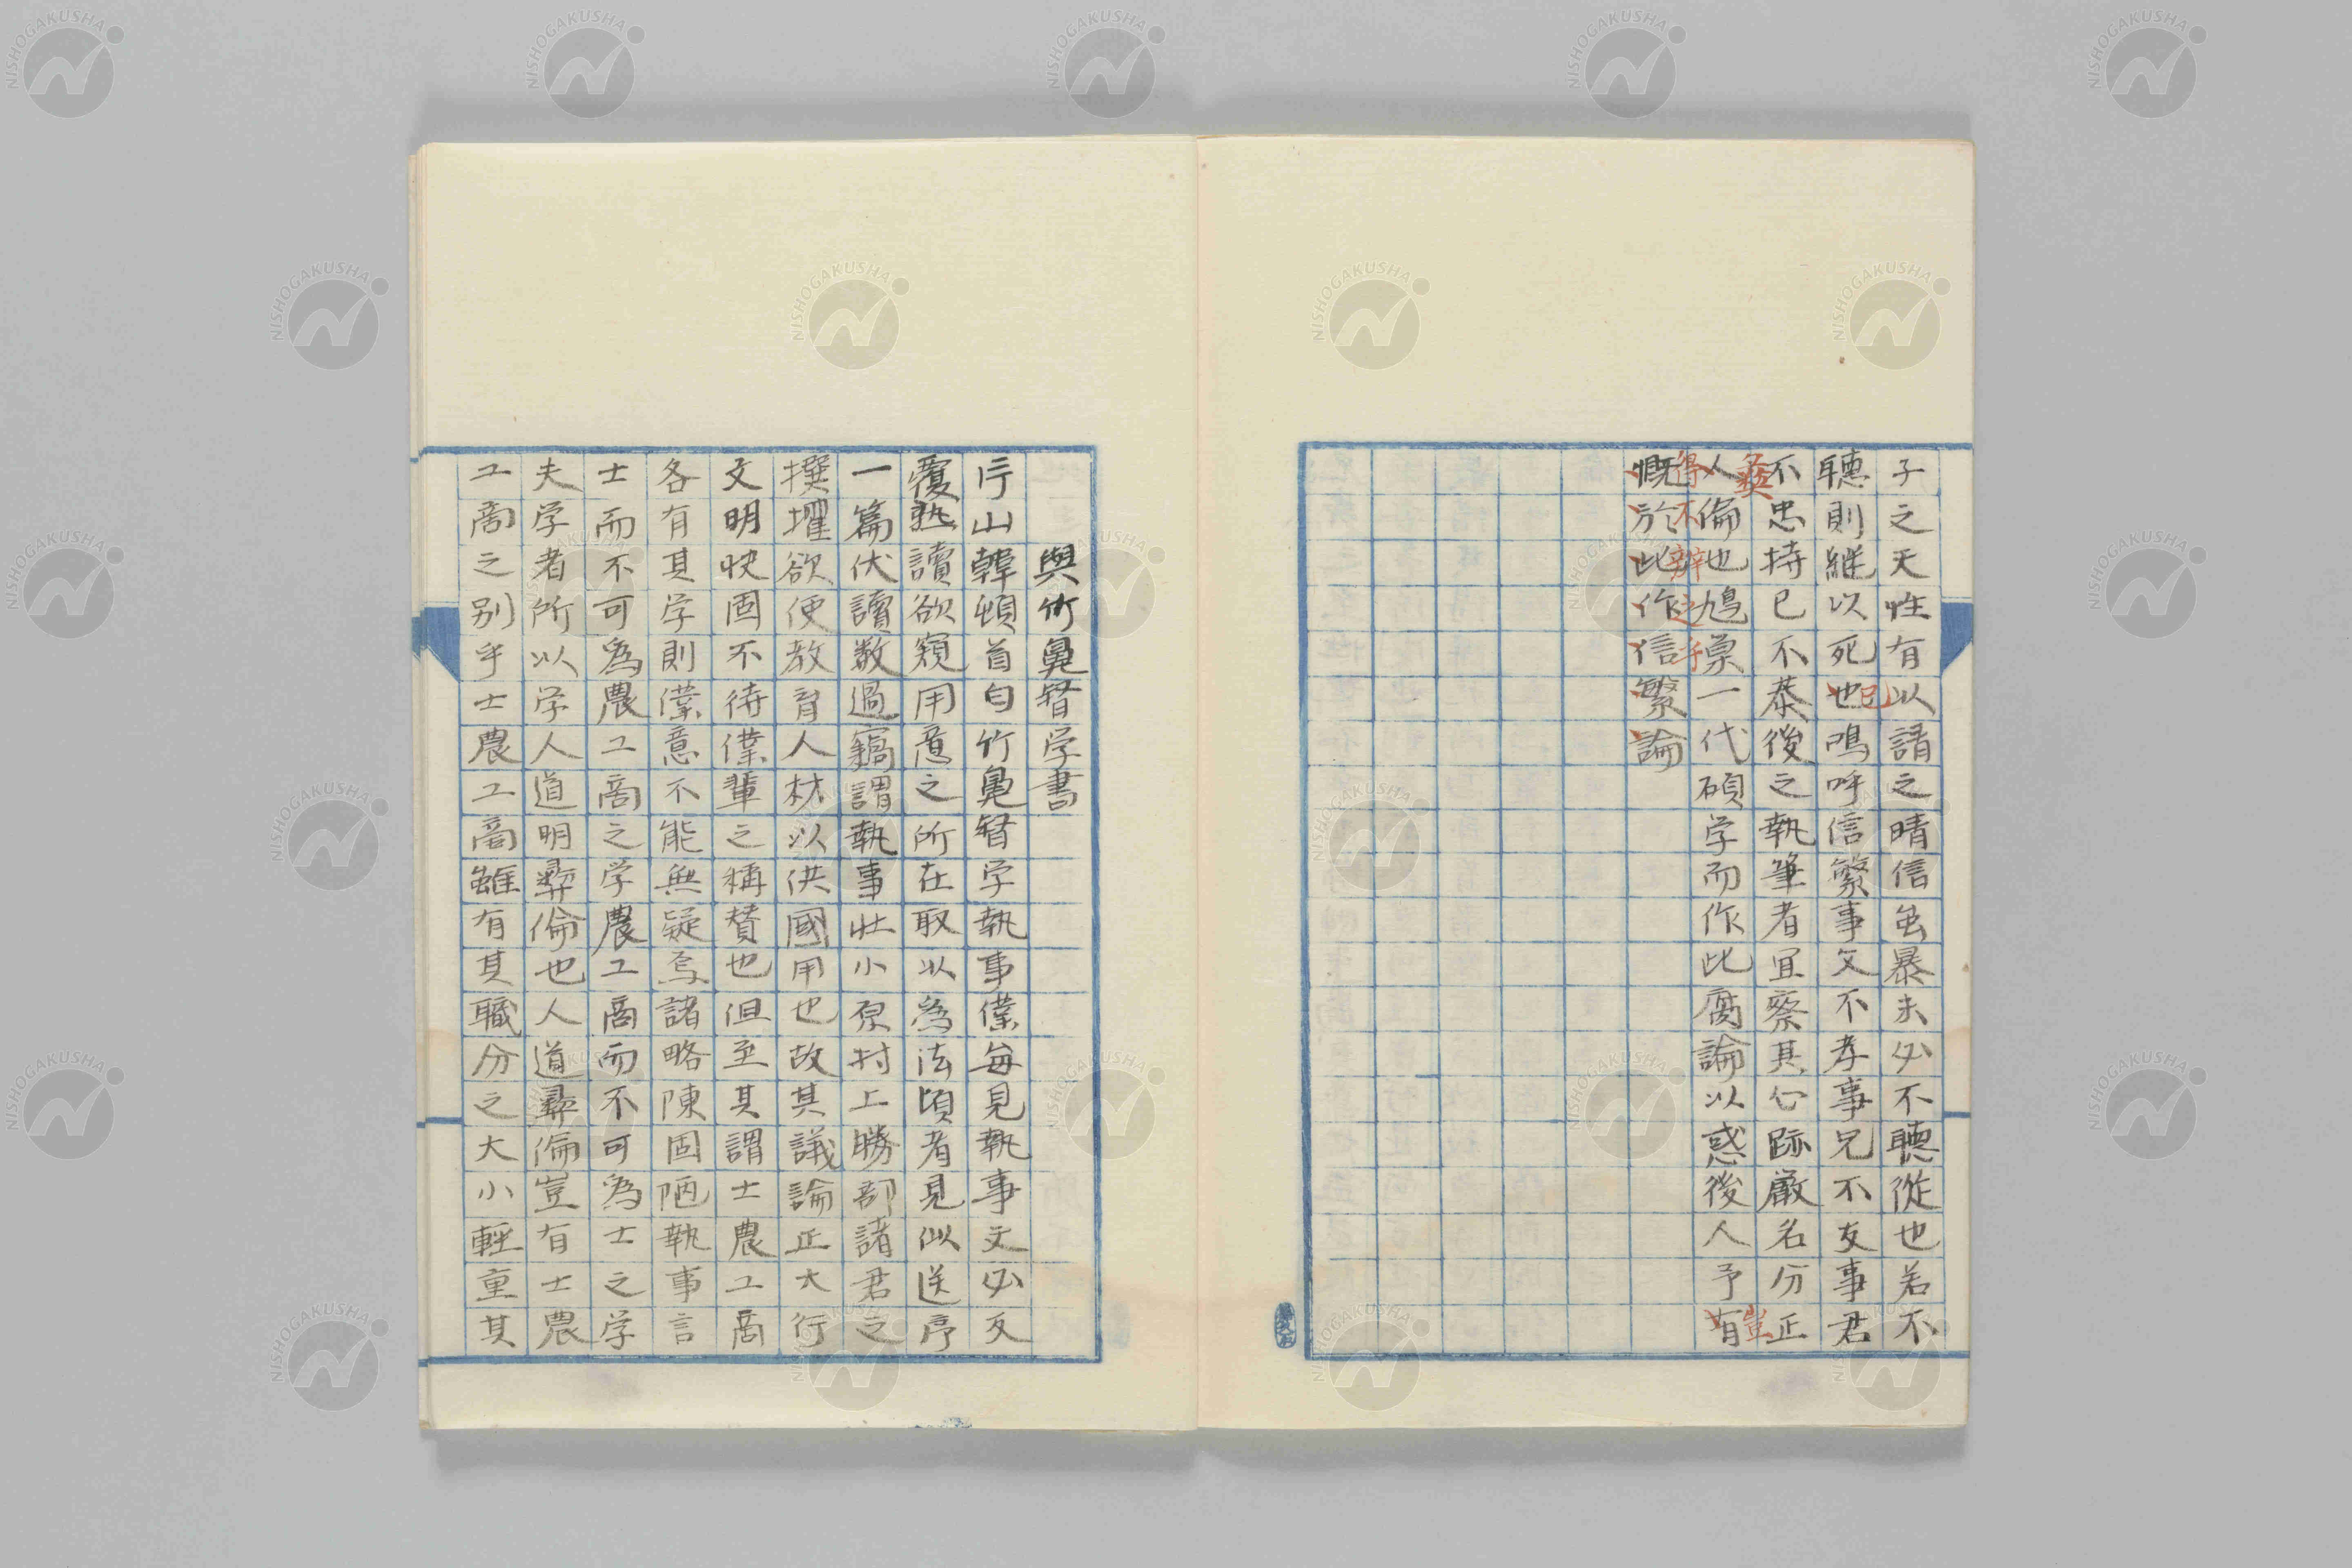 子之天性有以請之晴信虫暴未必不聽從也若不
聽則継以死也鳴呼信繁事父不孝事兄不友事君
已
不忠持已不恭後之執筆者宜察其心跡厳名分正
彜
人倫也鳩巣一代碩学而作此腐論以惑後人予有
豈
得不辨之乎
慨於此作信繁論
與竹鼻督学書
片山韓頓首白竹鼻督学執事僕毎見執事文必反
覆熟讀欲窺用意之所在取以為法頃者見似送序
一篇伏讀数過竊謂執事壮小原村上勝部諸君之
撰擢欲使教育人材以供國用也故其議論正大行
文明快固不待僕輩之稱賛也但至其謂士農工商
各有其学則僕意不能無疑焉諸略陳固陋執事言
士而不可為農工商之学農工商而不可為士之学
夫学者所以学人道明彜倫也人道彜倫豈有士農
工商之別乎士農工商雖有其職分之大小輕重其